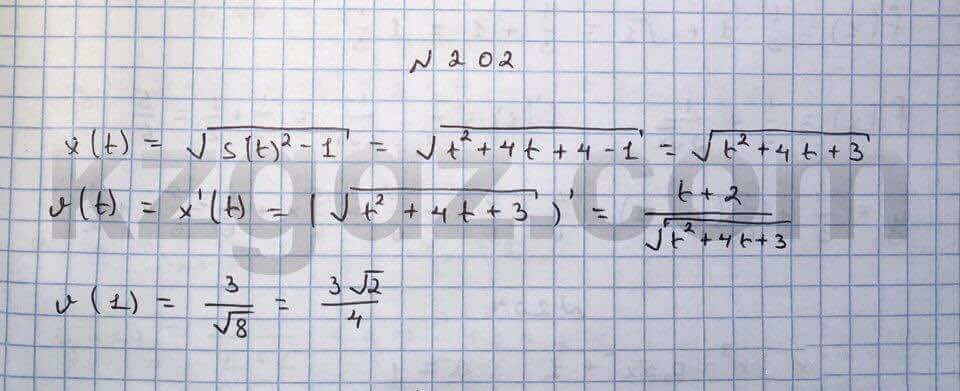 N 202
x(t) = √(s(t)² - 1) = √(t² + 4t + 4 - 1) = √(t² + 4t + 3)
v(t) = x'(t) = (√(t² + 4t + 3))' = (t + 2)/√(t² + 4t + 3)
v(1) = 3/√8 = 3√2/4
kzgdz.com